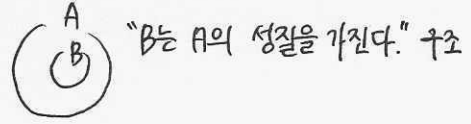 A
B
"B는 A의 성질을 가진다." 구조